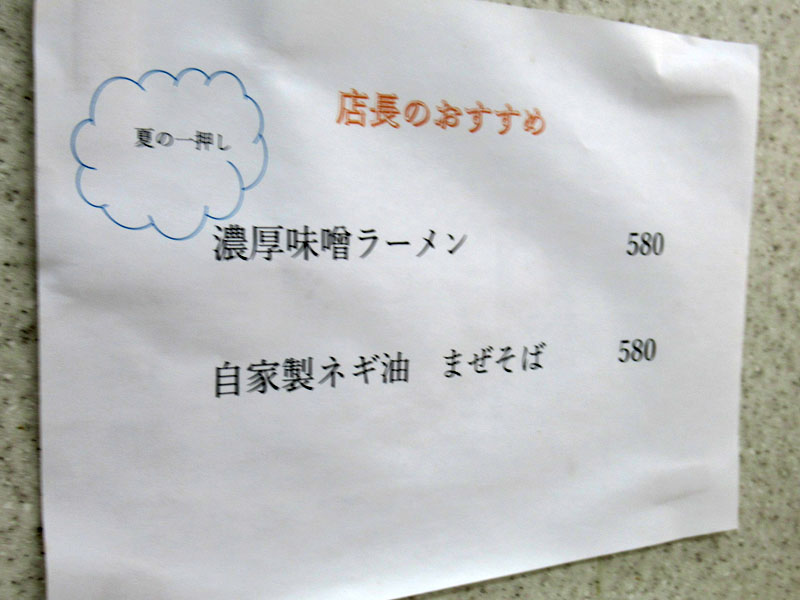 店長のおすすめ
夏の一押し
濃厚味噌ラーメン 580
自家製ネギ油 まぜそば 580